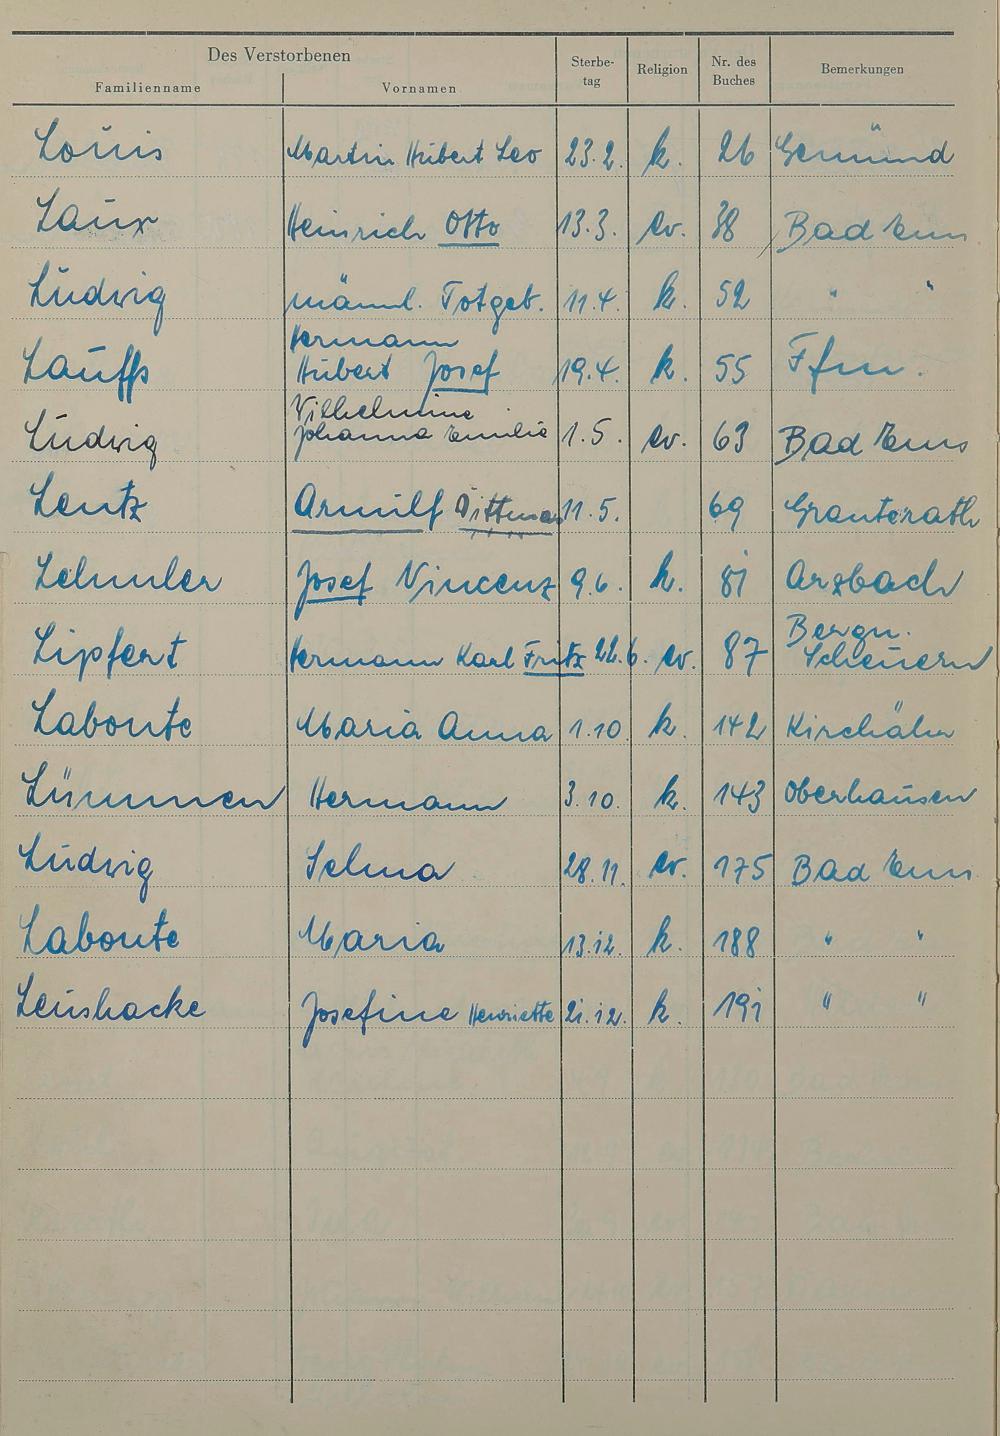 Des Verstorbenen
Familienname Vornamen Sterbe-tag Religion Nr. des Buches Bemerkungen
Louis Martin Hubert Leo 23.2. k. 26 Gemünd
Laux Heinrich Otto 13.3. ev. 38 Bad Ems
Ludwig männl. Totgeb. 11.4. k. 52 " "
Hermann
Lauffs Hubert Josef 19.4. k. 55 Ffm.
Wilhelmine
Ludwig Johanna Emilie 1.5. ev. 63 Bad Ems
Lentz Arnulf Dittmar 11.5. 69 Granterath
Lehmler Josef Vincenz 9.6. k. 81 Arzbach
Bergn.
Lipfert Hermann Karl Fritz 22.6. ev. 87 Scheuern
Labonte Maria Anna 1.10. k. 142 Kirchähr
Lümmen Hermann 3.10. k. 143 Oberhausen
Ludwig Selma 28.11. ev. 175 Bad Ems
Labonte Maria 13.12. k. 188 " "
Leushacke Josefine Henriette 21.12. k. 191 " "